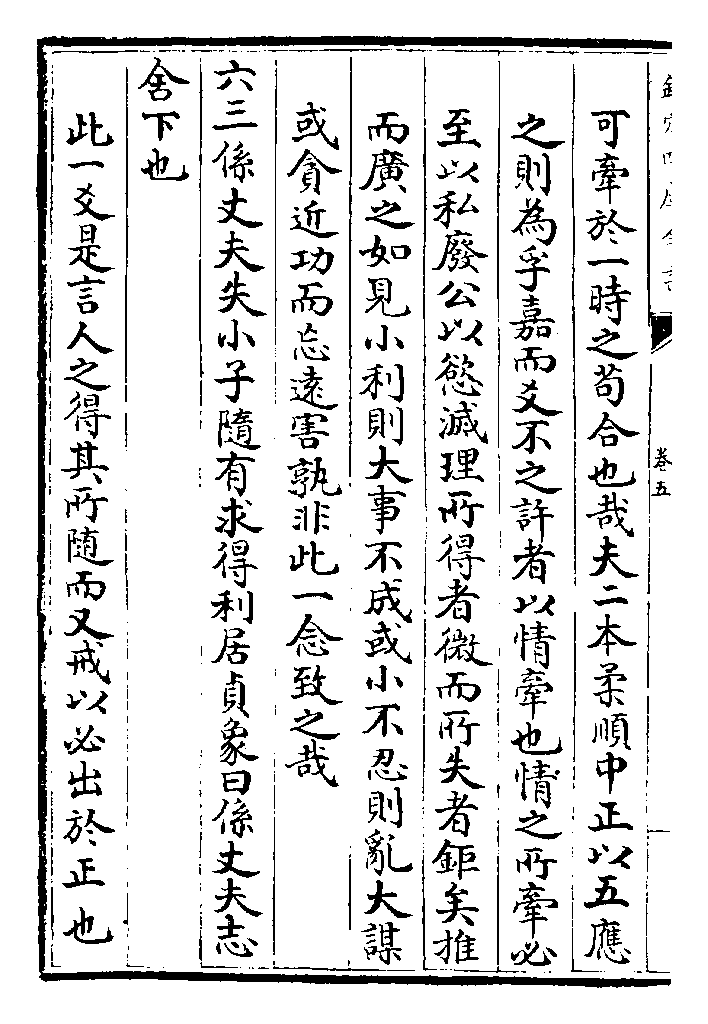 欽定四庫全書
卷五
可牽於一時之苟合也哉夫二本柔順中正以五應
之則為孚嘉而爻不之許者以情牽也情之所牽必
至以私廢公以慾滅理所得者微而所失者鉅矣推
而廣之如見小利則大事不成或小不忍則亂大謀
或貪近功而忘遠害孰非此一念致之哉
六三係丈夫失小子隨有求得利居貞象曰係丈夫志
舍下也
此一爻是言人之得其所隨而又戒以必出於正也